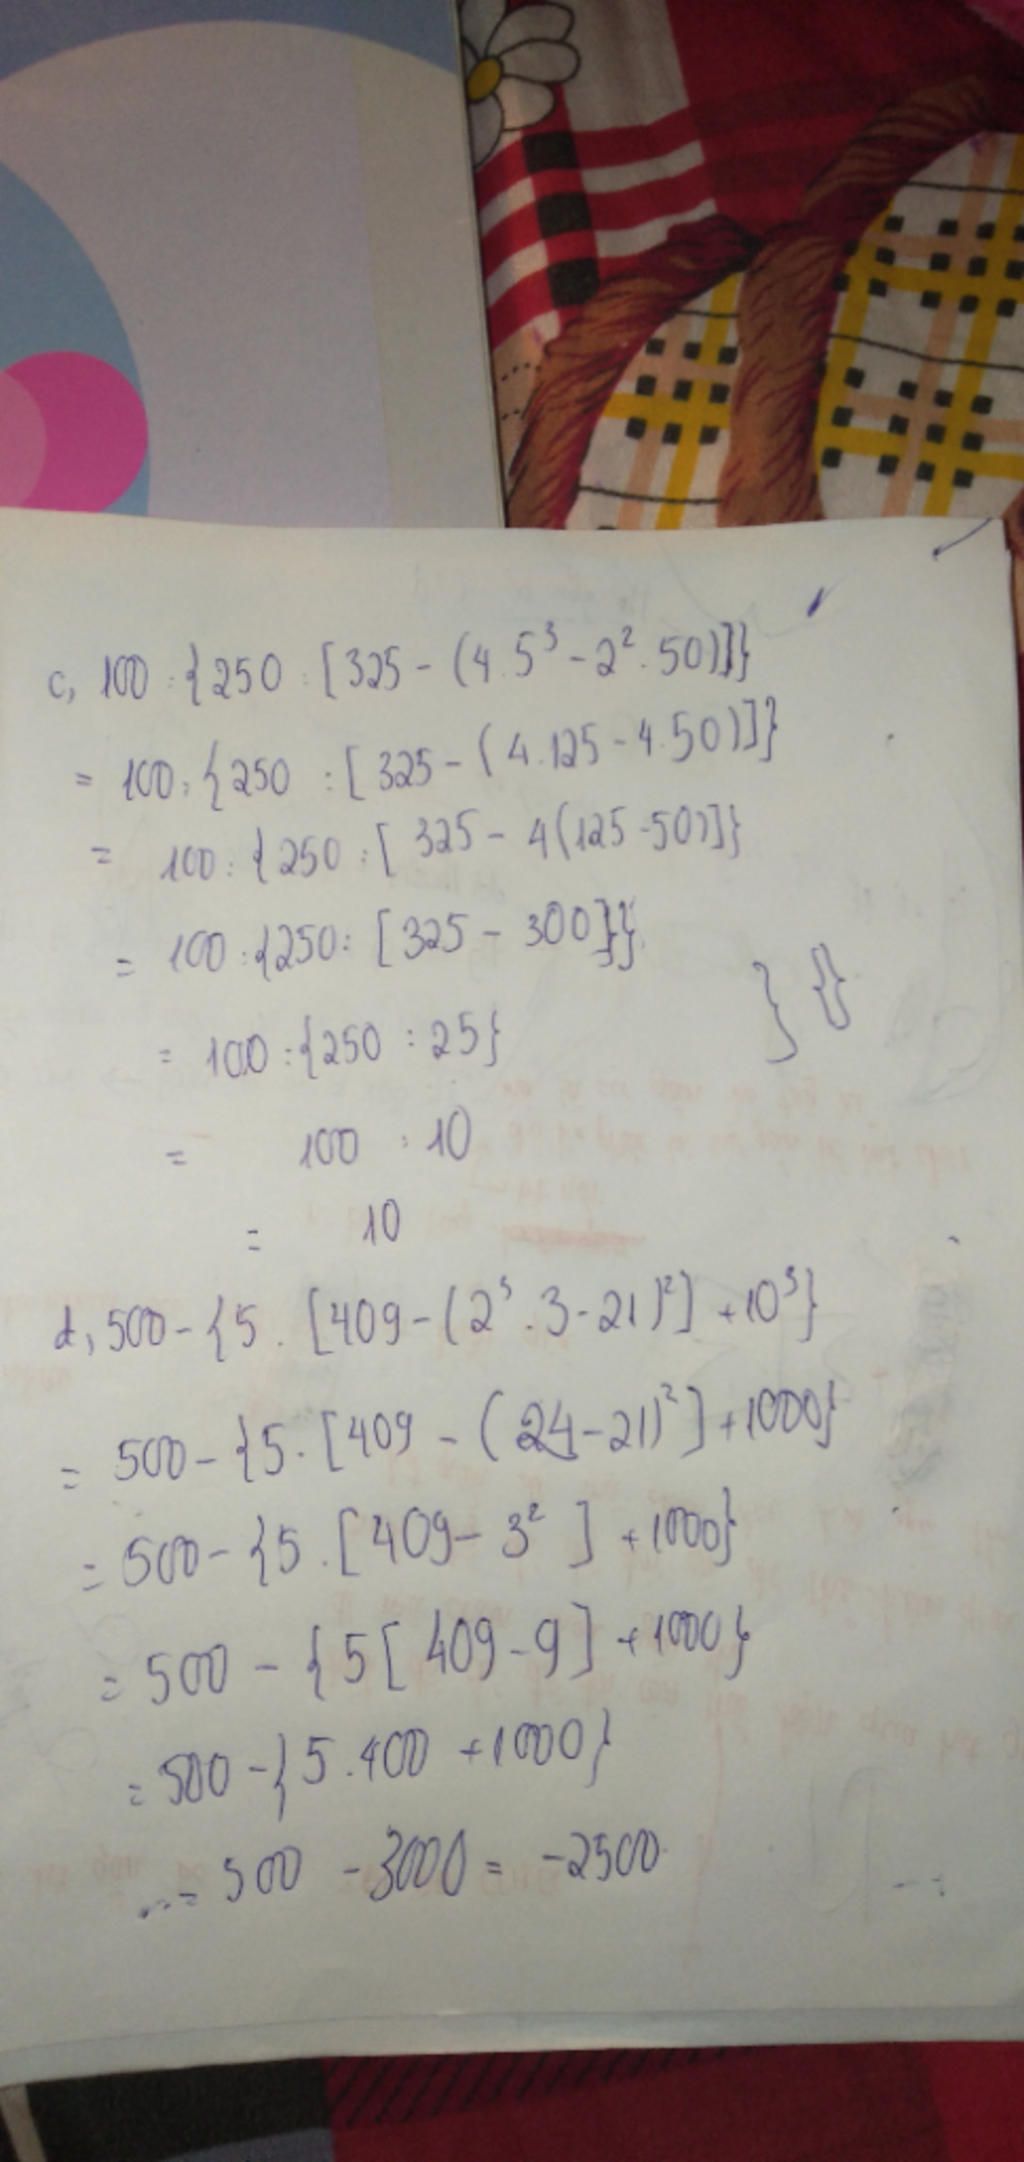 c, 100 : {250 : [325 - (4.5³ - 2².50)]}
= 100 : {250 : [325 - (4.125 - 4.50)]}
= 100 : {250 : [325 - 4(125-50)]}
= 100 : {250 : [325 - 300]}
} {}
= 100 : {250 : 25}
= 100 : 10
= 10
d, 500 - {5 . [409 - (2³ . 3 - 21)²] + 10³}
= 500 - {5 . [409 - (24 - 21)²] + 1000}
= 500 - {5 . [409 - 3²] + 1000}
= 500 - {5[409 - 9] + 1000}
= 500 - {5.400 + 1000}
= 500 - 3000 = -2500